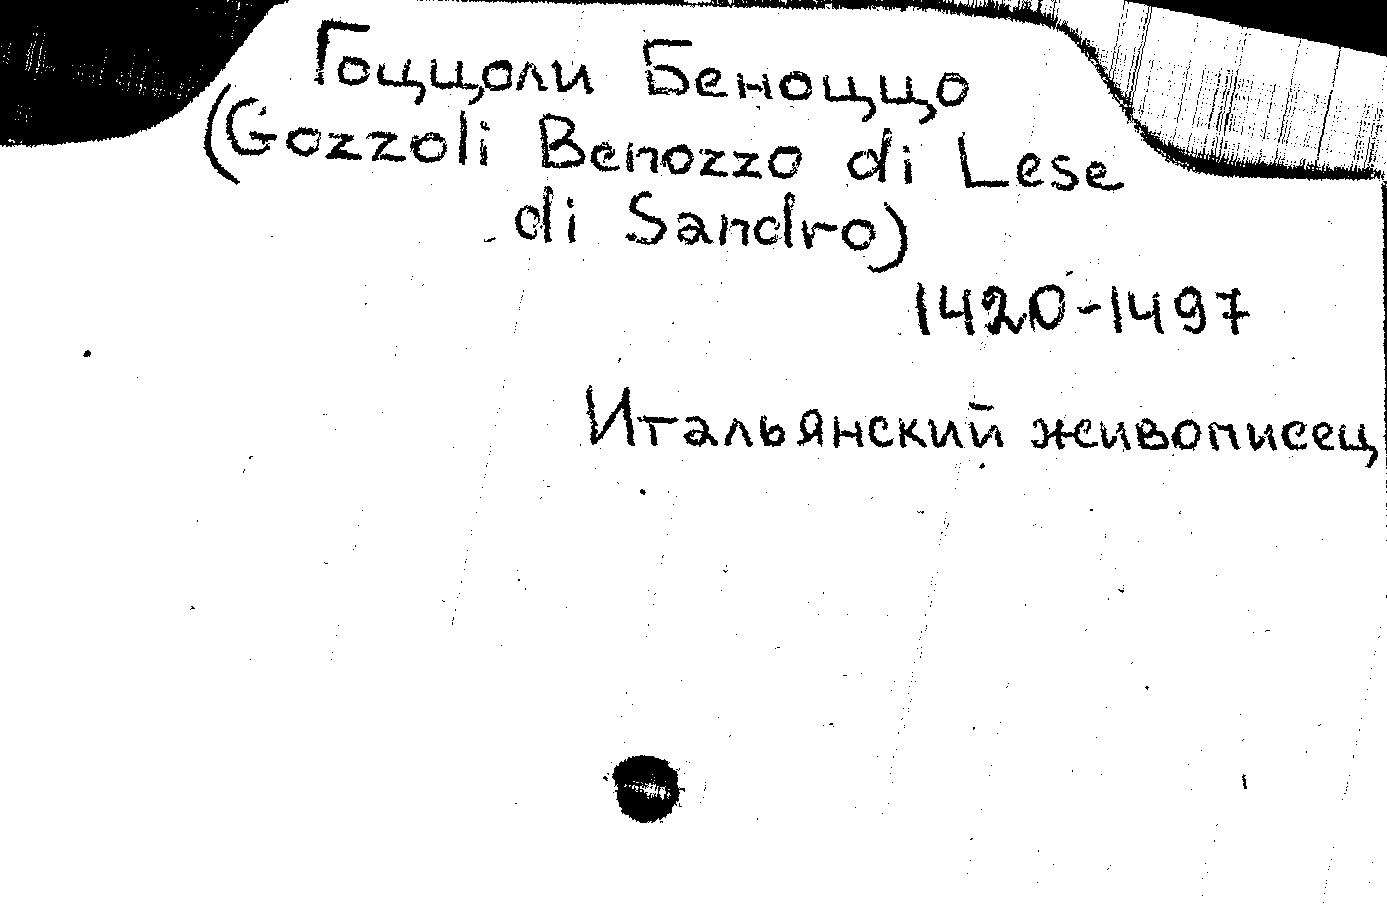 Гоццоли Беноццо
(Gozzoli Benozzo di Lese
di Sandro)
1420-1497
Итальянский живописец